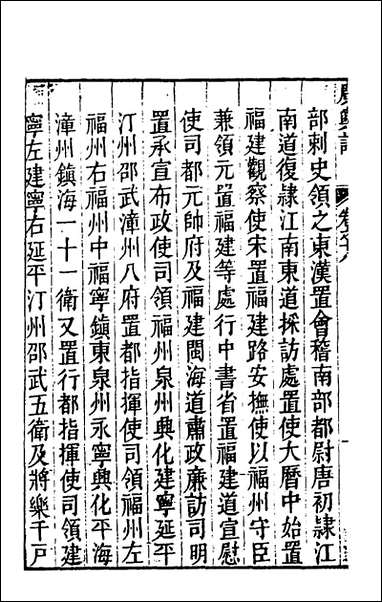 廣輿記
部刺史領之東漢置會稽南部都尉唐初隸江
南道復隸江南東道採訪處置使大曆中始置
福建觀察使宋置福建路安撫使以福州守臣
兼領元置福建等處行中書省置福建道宣慰
使司都元帥府及福建閩海道肅政廉訪司明
置承宣布政使司領福州泉州興化建寧延平
汀州邵武漳州八府置都指揮使司領福州左
福州右福州中福寧鎮東泉州永寧興化平海
漳州鎮海一十一衛又置行都指揮使司領建
寧左建寧右延平汀州邵武五衛及將樂千戶